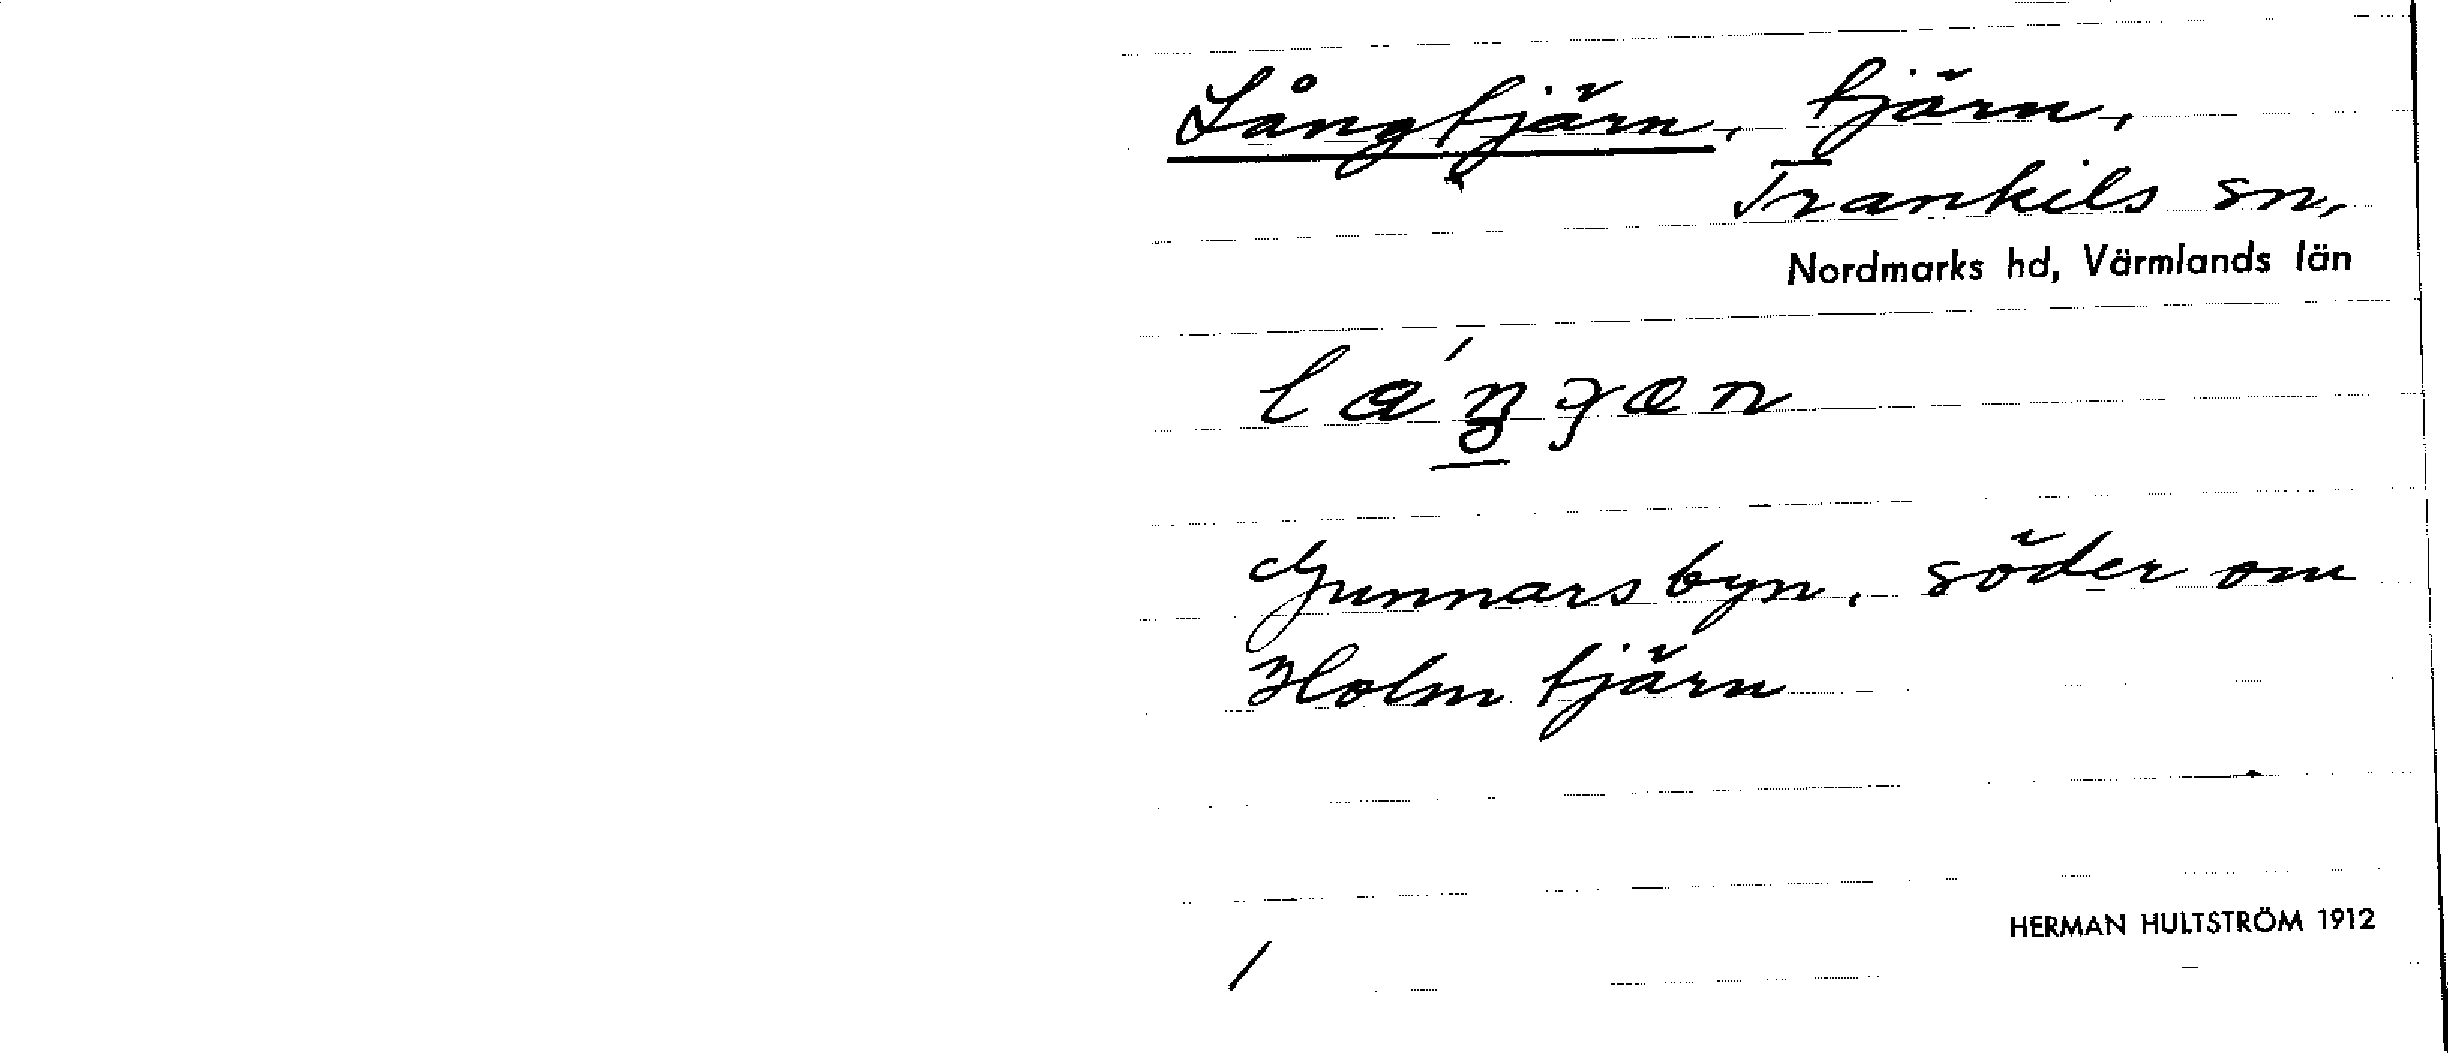 Långtjärn, tjärn,
Trankils sn,
Nordmarks hd, Värmlands län
Gunnarsbyn, söder om
Holmtjärn
HERMAN HULTSTRÖM 1912
/